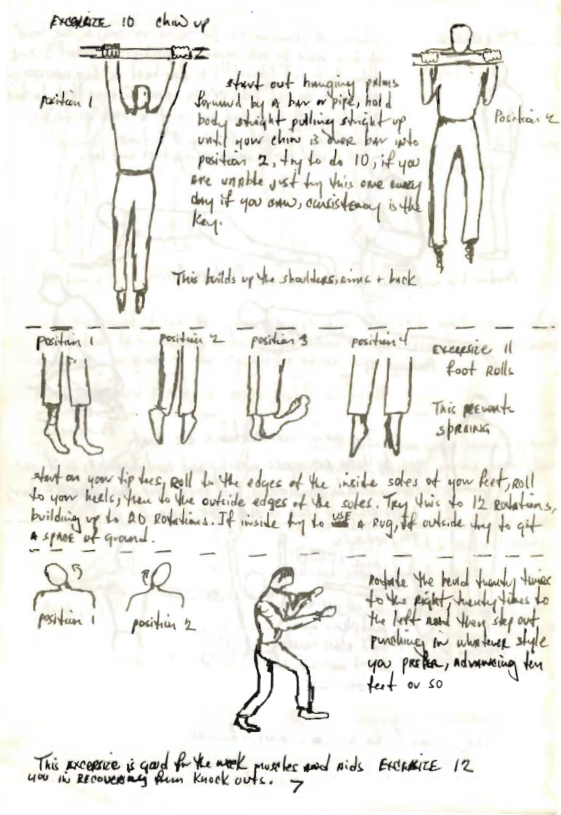 EXCERSIZE 10 chin up
position 1
Position 2
start out hanging palms
forward by a bar or pipe, hold
body straight pulling straight up
until your chin is over bar into
position 2, try to do 10, if you
are unable just try this one every
day if you can, consistency is the
Key.
This builds up the shoulders, arms + back
position 1
position 2
position 3
position 4
EXCERSIZE 11
foot Rolls
This prevents
spraining
start on your tip toes, Roll to the edges of the inside soles of your feet, Roll
to your heels, then to the outside edges of the soles. Try this to 12 Rotations,
building up to 20 Rotations. If inside try to USE a Rug, if outside try to git
a space of ground.
position 1
position 2
Rotate the head twenty times
to the Right, twenty times to
the left and then step out
punching in whatever style
you prefer, advancing ten
feet or so
This excersize is good for the neck muscles and aids
you in recovering from Knock outs.
EXCERSIZE 12
7